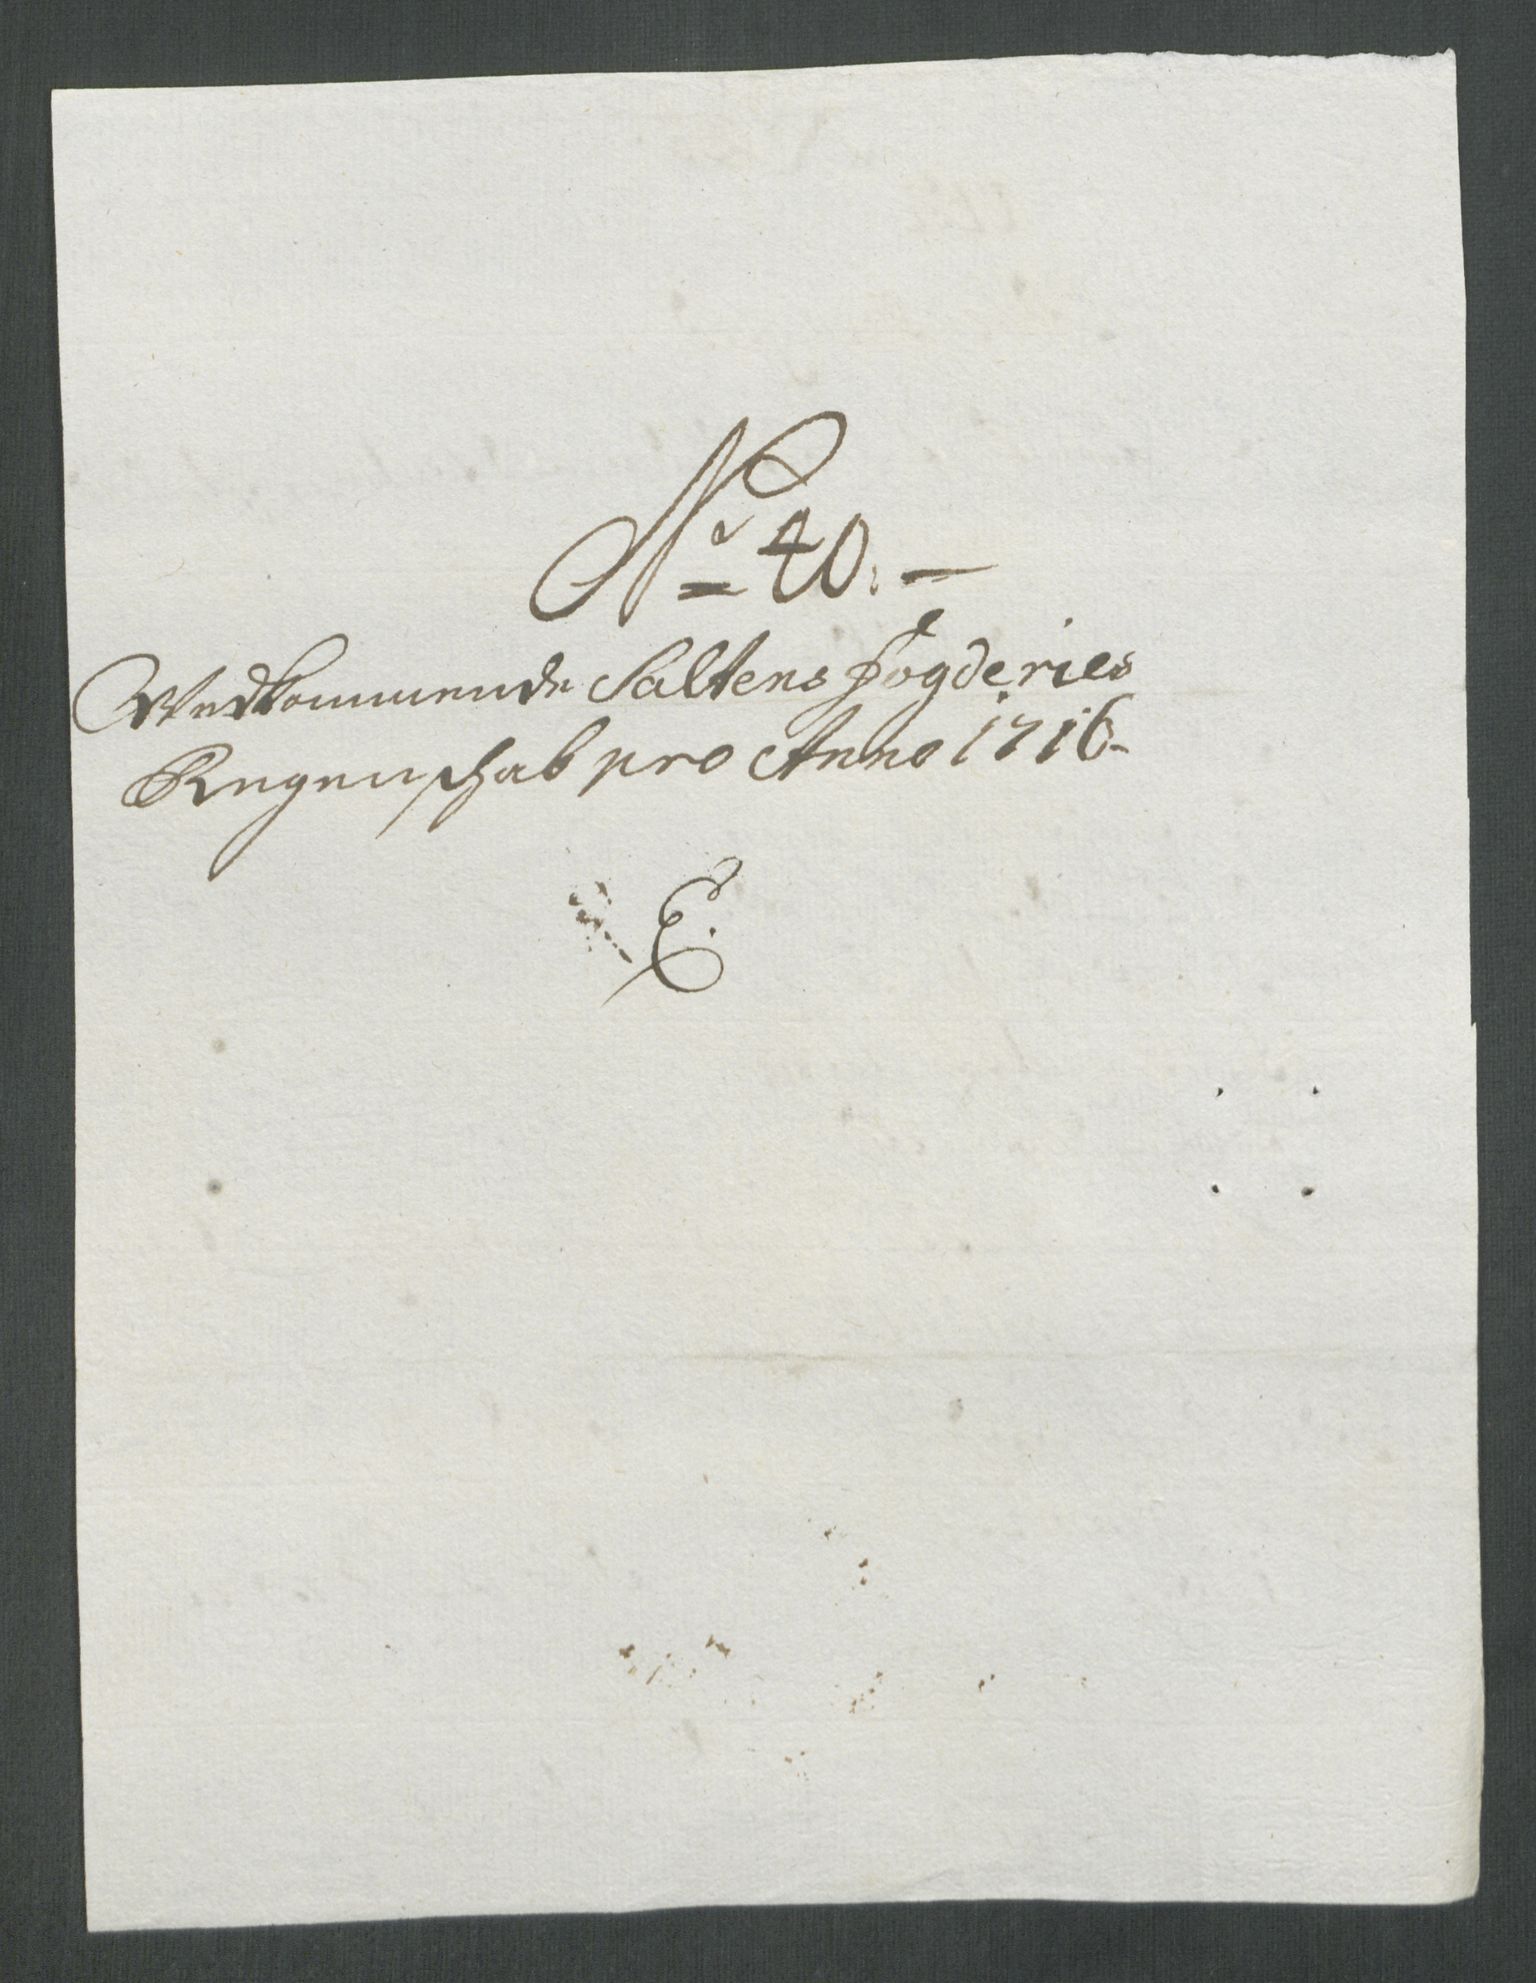 No 40. —
Vedkommende Saltens Fogderies
Regenschab pro Anno 1716-
E.